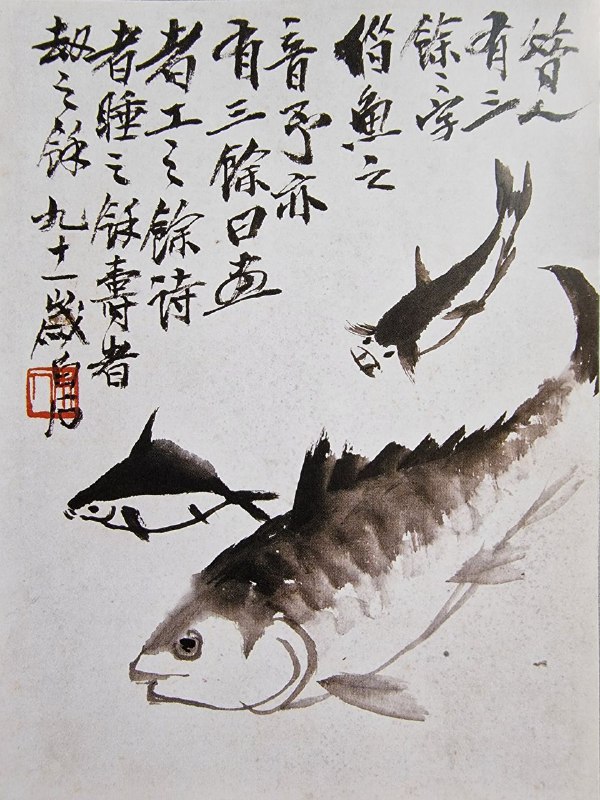 昔人
有三
餘〻字
借魚之
音予亦
有三餘曰畫
者工之餘詩
者睡之餘壽者
劫之餘 九十一歲白石